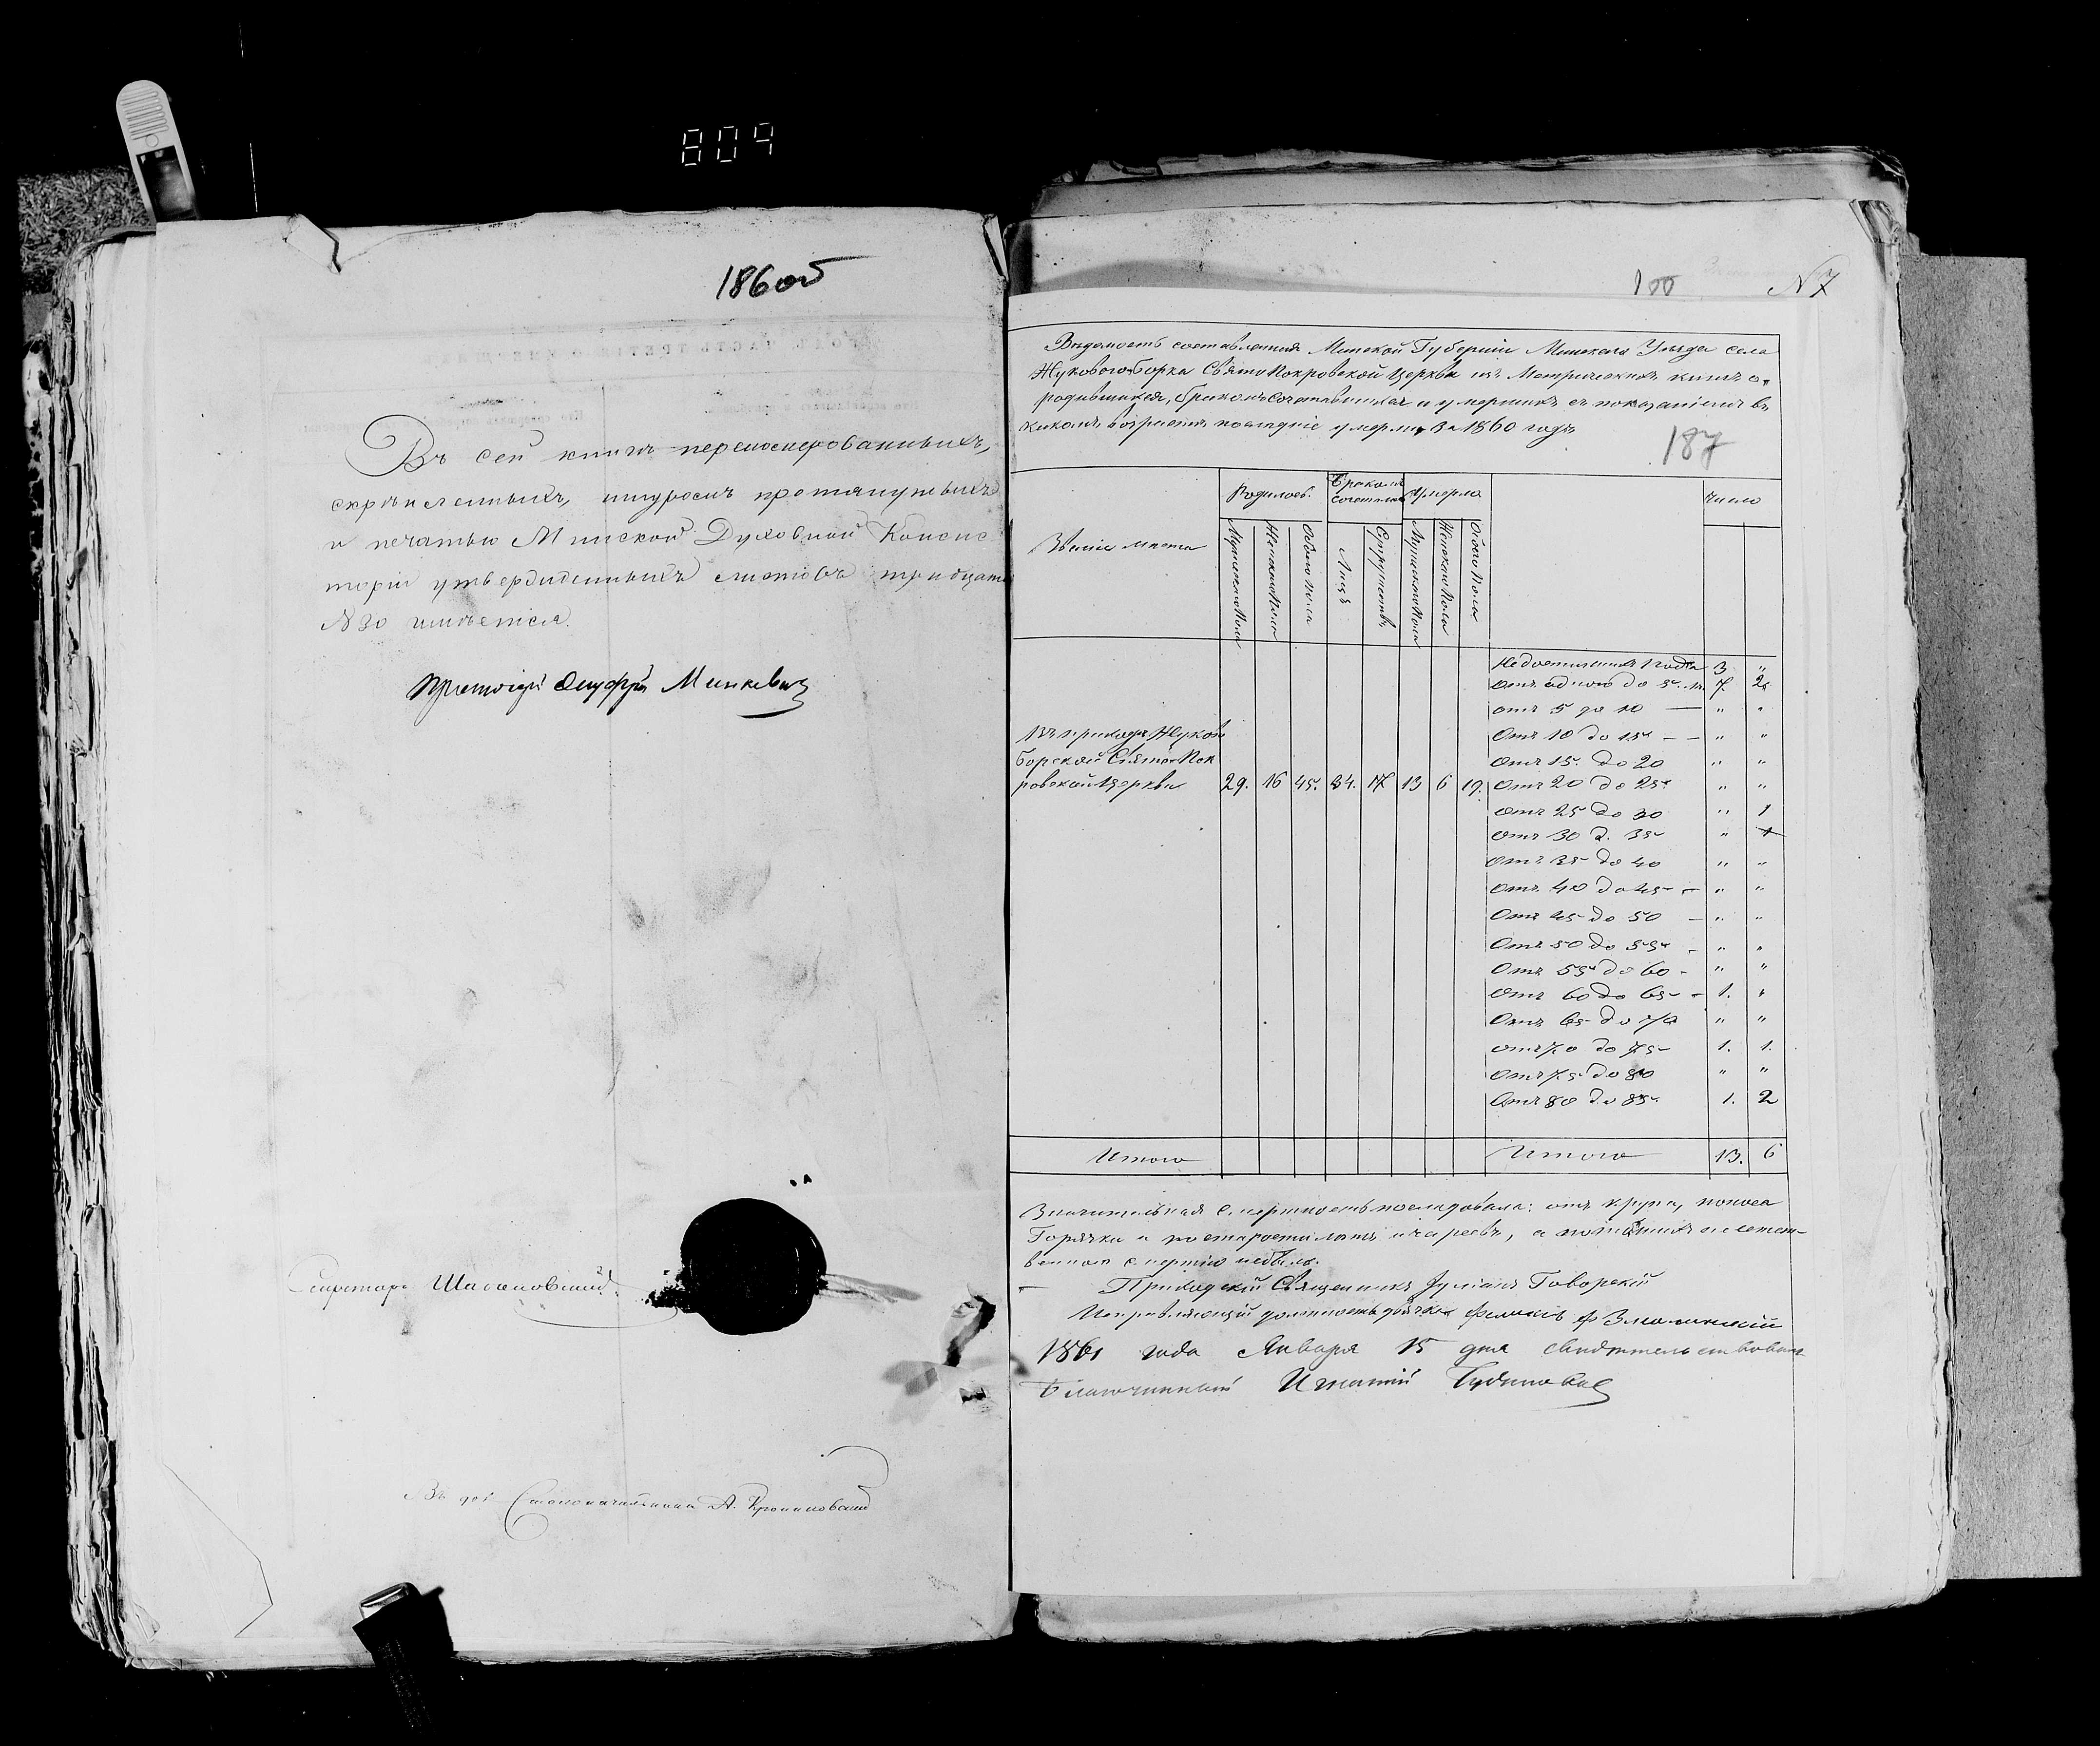 809
186 об
Въ сей книгѣ перенумерованныхъ,
скрѣпленныхъ, шнуромъ протянутыхъ
и печатью Минской Духовной Консис
торіи утвержденныхъ листовъ тридцать
№ 30 имѣется.
Протоіерей Онуфрій Минкевичъ
Секретарь
Въ дол. Столоначальника А.
100 № 7
Вѣдомость составленная Минской Губерніи Минскаго Уѣзда села
Жуковогоборка Свято Покровской Церкви изъ Метрическихъ книгъ о
родившихся, бракомъ сочетавшихся и умершихъ съ показаніемъ въ
какомъ возрастѣ послѣдніе умерли, За 1860 годъ
187
Званіе мѣста
Родилось.
Бракомъ сочетались
Умерло
Число
Мужеска Пола
Женска Пола
Обоего пола
Лицъ
Супружествъ
Мужеска Пола
Женска Пола
Обоего Пола
Недостигшихъ 1 года 3. "
Отъ одного до 5. 7. 2.
отъ 5 до 10 — " "
Въ приходѣ Жуково
Отъ 10 до 15 — — " "
борской Свято Пок
Отъ 15. до 20 " "
ровской Церкви 29. 16 45. 34. 17 13 6 19. Отъ 20 до 25 " "
Отъ 25 до 30 " 1
Отъ 30 д. 35 "
Отъ 35 до 40 " "
Отъ 40 до 45 - " "
Отъ 45 до 50 - " "
Отъ 50 до 55 - " "
Отъ 55 до 60 - " "
Отъ 60 до 65 - 1. "
Отъ 65 до 70 " "
отъ 70 до 75 1. 1.
Отъ 75 до 80 " "
Отъ 80 до 85 1. 2
Итого Итого 13. 6
Значительная смертность послѣдовала: отъ крупа, поноса
Горячки и по старости лѣтъ
смертію небыло.
Приходскій Священникъ Іуліанъ Говорскій
Исправляющій должность дьячка
1861 года Января 15 дня свидѣтельствовалъ
Благочинный Игнатій